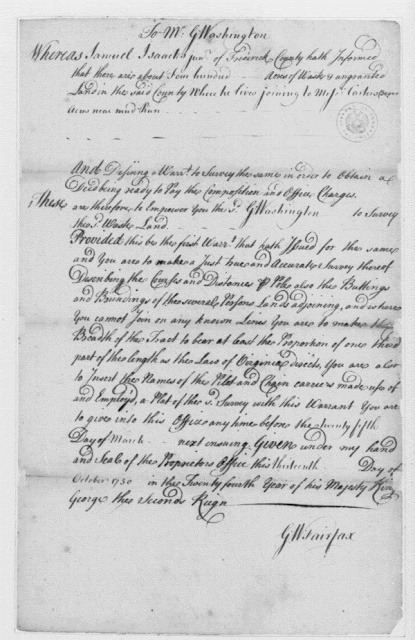 To Mr. G Washington
Whereas Samuel Isaacks junr. of Frederick County hath Informed
that there are about Four hundred Acres of Waste & ungranted
Land in the said County Where he lives joining to
Acres near mud Run
And Desiring a Warrt. to Survey the same in order to Obtain a
Deed being ready to Pay the Composition and Office Charges.
These are therefore to Empower You the sd. G Washington to Survey
the sd. Waste Land.
Provided this be the first Warrt. that hath Issued for the same
and You are to make a Just true and Accurate Survey thereof
Discribing the Courses and Distances P Poles also the Buttings
and Boundings of the several Persons Lands adjoining, and where
You cannot Join on any known Lines You are to make the
Breadth of the Tract to bear at least the Proportion of one third
part of the length as the Law of Virginia directs, You are also
to Insert the Names of the Pilot and Chain carriers made use of
and Employ'd, a Plat of the sd. Survey with this Warrant You are
to give into this Office any time before the twenty fifth
Day of March next ensuing Given under my hand
and Seal of the Proprietors Office this thirteenth Day of
October 1750 in the Twenty fourth Year of his Majesty King
George the Seconds Reign
GW Fairfax